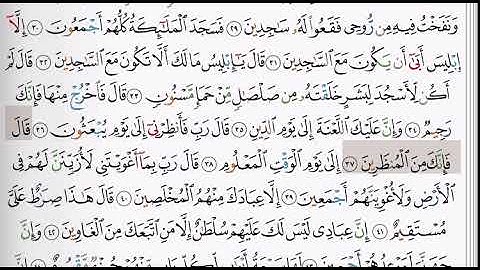 وَنَفَخْتُ فِيهِ مِن رُّوحِى فَقَعُوا۟ لَهُۥ سَـٰجِدِينَ ٢٩ فَسَجَدَ ٱلْمَلَـٰٓئِكَةُ كُلُّهُمْ أَجْمَعُونَ ٣٠ إِلَّآ
إِبْلِيسَ أَبَىٰٓ أَن يَكُونَ مَعَ ٱلسَّـٰجِدِينَ ٣١ قَالَ يَـٰٓإِبْلِيسُ مَا لَكَ أَلَّا تَكُونَ مَعَ ٱلسَّـٰجِدِينَ ٣٢ قَالَ لَمْ
أَكُن لِّأَسْجُدَ لِبَشَرٍ خَلَقْتَهُۥ مِن صَلْصَـٰلٍ مِّنْ حَمَإٍ مَّسْنُونٍ ٣٣ قَالَ فَٱخْرُجْ مِنْهَا فَإِنَّكَ
رَجِيمٌ ٣٤ وَإِنَّ عَلَيْكَ ٱللَّعْنَةَ إِلَىٰ يَوْمِ ٱلدِّينِ ٣٥ قَالَ رَبِّ فَأَنظِرْنِىٓ إِلَىٰ يَوْمِ يُبْعَثُونَ ٣٦ قَالَ
فَإِنَّكَ مِنَ ٱلْمُنظَرِينَ ٣٧ إِلَىٰ يَوْمِ ٱلْوَقْتِ ٱلْمَعْلُومِ ٣٨ قَالَ رَبِّ بِمَآ أَغْوَيْتَنِى لَأُزَيِّنَنَّ لَهُمْ فِى
ٱلْأَرْضِ وَلَأُغْوِيَنَّهُمْ أَجْمَعِينَ ٣٩ إِلَّا عِبَادَكَ مِنْهُمُ ٱلْمُخْلَصِينَ ٤٠ قَالَ هَـٰذَا صِرَٰطٌ عَلَىَّ
مُسْتَقِيمٌ ٤١ إِنَّ عِبَادِى لَيْسَ لَكَ عَلَيْهِمْ سُلْطَـٰنٌ إِلَّا مَنِ ٱتَّبَعَكَ مِنَ ٱلْغَاوِينَ ٤٢ وَإِنَّ